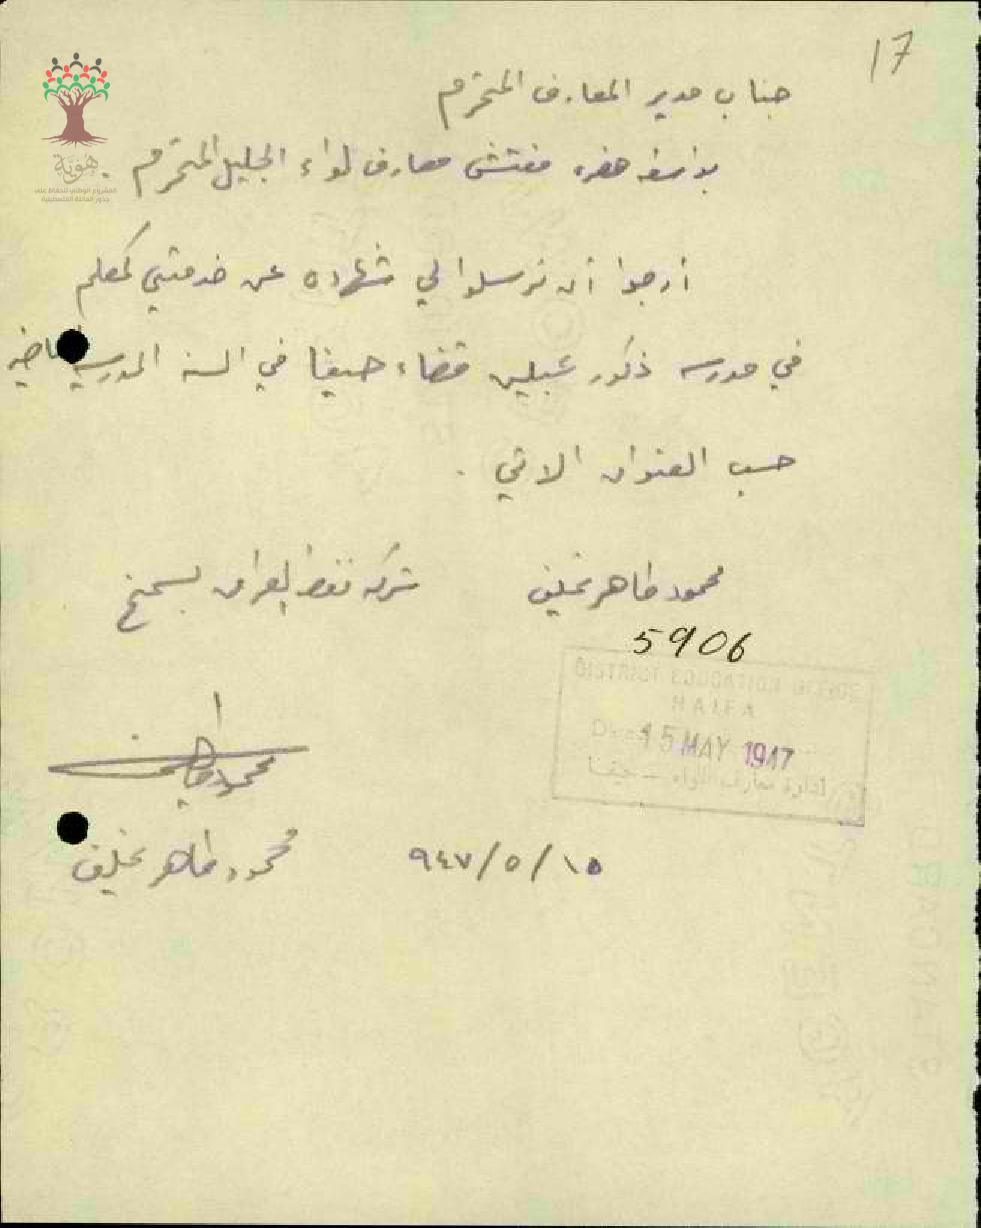 17
جناب مدير المعارف المحترم
بواسطة حضرة مفتش معارف لواء الجليل المحترم .
أرجوا أن ترسلوا لي شهاده عن خدمتي كمعلم
في مدرسه ذكور عبلين قضاء حيفا في السنه المدرسيه الماضيه
حسب العنوان الاتي .
محمود طاهر مخليف شركه نفط العراق بسمخ
5906
DISTRICT EDUCATION OFFICE
HAIFA
15 MAY 1947
ادارة معارف اللواء - حيفا
محمود طاهر
١٥/٥/٩٤٧
محمود طاهر مخليف
هوية
المشروع الوطني للحفاظ على
جذور العائلة الفلسطينية